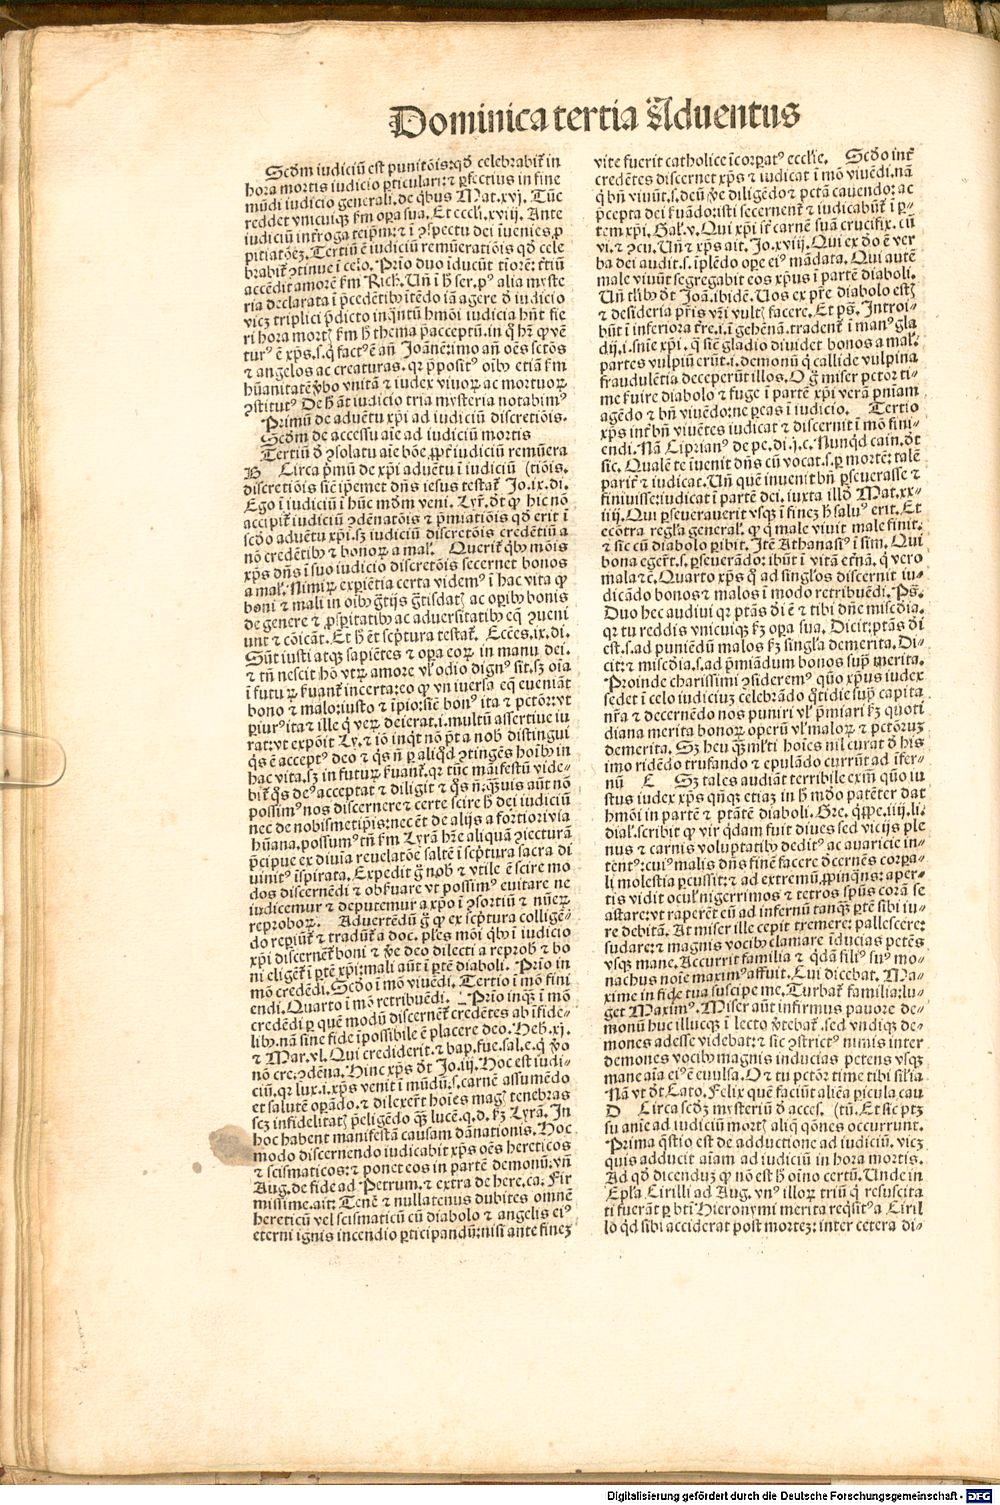 Dominica tertia Aduentus
Scd̄m iudiciū est punitōis: qd̄ celebrabit̄ in
hora mortis iudicio pticulari: ⁊ pfectius in fine
mūdi iudicio generali. de q̄bus Mat. xvj. Tūc
reddet vnicuiqꝫ km̄ oꝑa sua. Et eccli. xviij. Ante
iudiciū int̄roga teip̄m: ⁊ ī ꝯspectu dei īuenies ꝓ
pitiatōeꝫ. Tertiū ē iudiciū remūeratiōis qd̄ cele
brabit̄ ꝯtinue ī celo. Prīo duo īducūt tīorē: t̄tiū
accēdit amorē km̄ Rich. Vn̄ ī h̄ ser. pꝰ alia myste
ria declarata ī p̄cedētibꝰ ītēdo iā agere d̄ iudicio
viꝫ triplici p̄dicto inqntū hmōi iudicia hn̄t fie
ri hora mortꝭ km̄ h̄ thema p̄acceptū. in q̄ hr̄ ꝙ vē
turꝰ ē xp̄s. s. q̄ factꝰ ē an̄ Joānē: imo an̄ oēs sctōs
⁊ angelos ac creaturas. qꝛ p̄positꝰ oibꝰ etiā km̄
hūanitatē v̄bo vnitā ⁊ iudex viuoꝝ ac mortuoꝝ
ꝯstitutꝰ De h̄ āt iudicio tria mysteria notabimꝰ
Primū de aduētu xp̄i ad iudiciū discretiōis.
Scd̄m de accessu aīe ad iudiciū mortis
Tertiū d̄ ꝯsolatu aīe bōe. ꝓpt̄ iudiciū remūera
B Circa p̄mū de xp̄i aduētu ī iudiciū (tiōis.
discretiōis siē ip̄emet dn̄s iesus testat̄ Jo. ix. di.
Ego ī iudiciū ī hūc mdm̄ veni. Lyr̄. dt̄ ꝙ hic nō
accipit̄ iudiciū ꝯdēnatōis ⁊ p̄miatiōis qd̄ erit ī
scd̄o aduētu xp̄i. sꝫ iudiciū discretōis credētiū a
nō credētibꝰ ⁊ bonoꝝ a mal̄. Querit̄ q̄bꝰ mōis
xp̄s dn̄s ī suo iudicio discretōis secernet bonos
a mal̄. Nimiꝝ exꝑiētia certa videmꝰ ī hac vita ꝙ
boni ⁊ mali in oibꝰ ḡtijs ḡtisdatꝭ ac oꝑibꝰ bonis
de genere ⁊ ꝓsꝑitatibꝰ ac aduersitatibꝰ eq̄ ꝯueni
unt ⁊ cōicāt. Et h̄ ēt scp̄tura testat̄. Ecces. ix. di.
Sūt iusti atqꝫ sapiētes ⁊ oꝑa eoꝝ in manu dei.
⁊ tn̄ nescit hō vtꝝ amore vl̄ odio dignꝰ sit. sꝫ oīa
ī futuꝝ kuant̄ incerta: eo ꝙ vniuersa eq̄ eueniāt
bono ⁊ malo: iusto ⁊ īpio: siē bonꝰ ita ⁊ pctōr: vt
ꝑiurꝰ ita ⁊ ille q̄ veꝝ deierat. i. multū assertiue iu
rat: vt expōit Ly. ⁊ iō inqt̄ nō pt̄ a nob̄ distingui
q̄s ē acceptꝰ deo ⁊ q̄s n̄ ꝑ aliqd̄ ꝯtingēs hoībꝰ in
hac vita. sꝫ in futuꝝ kuant̄. qꝛ tūc māifestū vide-
bit̄ q̄s deꝰ acceptat ⁊ diligit ⁊ q̄s n̄: qꝫuis aūt nō
possimꝰ nos discernere ⁊ certe scire h̄ dei iudiciū
nec de nobismetip̄is: nec ēt de alijs a fortiori via
hūana. possumꝰ tn̄ km̄ Lyrā hr̄e aliquā ꝯiecturā
p̄cipue ex diuīa reuelatōe saltē ī scp̄tura sacra di
uinitꝰ īspirata. Expedit ḡ nob̄ ⁊ vtile ē scire mo
dos discernēdi ⁊ obkuare vt possimꝰ euitare ne
iudicemur ⁊ deputemur a xp̄o ī ꝯsortiū ⁊ nūeꝝ
reproboꝝ. Aduertēdū ḡ ꝙ ex scp̄tura colligē-
do reꝑiūt̄ ⁊ tradūt̄ a doc. pl̄es mōi q̄bꝰ ī iudicio
xp̄i discernēt̄ boni ⁊ v̄e deo dilecti a reprob̄ ⁊ bo
ni eligēt̄ ī ꝑtē xp̄i: mali aūt ī ꝑtē diaboli. Prīo in
mō credēdi. Scd̄o ī mō viuēdi. Tertio ī mō fini
endi. Quarto ī mō retribuēdi. Prīo inqꝫ ī mō
credēdi ꝑ quē modū discernēt̄ credētes ab īfide-
libꝰ. nā sine fide īpossibile ē placere deo. Heb̄. xj.
⁊ Mar. vl. Qui crediderit. ⁊ bap. fue. sal. e. q̄ v̄o
nō cre. ꝯdēna. Hinc xp̄s dt̄ Jo. iij. Hoc est iudi-
ciū. qꝛ lux. i. xp̄s venit ī mūdū: s. carnē assumēdo
et salutē oꝑādo. ⁊ dilexer̄t hoīes magꝭ tenebras
scꝫ infidelitatꝭ p̄eligēdo qꝫ lucē. q. d. kꝫ Lyrā. In
hoc habent manifestā causam dānationis. Hoc
modo discernendo iudicabit xp̄s oēs hereticos
⁊ scismaticos: ⁊ ponet eos in partē demonū. vn̄
Aug. de fide ad Petrum. ⁊ extra de here. ca. Fir
missime. ait: Tenē ⁊ nullatenus dubites omnē
hereticū vel scismaticū cū diabolo ⁊ angelis eiꝰ
eterni ignis incendio ꝑticipandū: nisi ante fineꝫ
vite fuerit catholice īcorꝑatꝰ eccl̄ie. Scd̄o int̄
credētes discernet xp̄s ⁊ iudicat ī mō viuēdi. nā
q̄ bn̄ viuūt. s. deū v̄e diligēdo ⁊ pctā cauendo: ac
p̄cepta dei kuādo: isti secernent̄ ⁊ iudicabūt̄ ī ꝑ-
tem xp̄i. Gal̄. v. Qui xp̄i st̄ carnē suā crucifix. cū
vi. ⁊ ꝯcu. Vn̄ ⁊ xp̄s ait. Jo. xviij. Qui ex d̄o ē ver
ba dei audit. s. īplēdo oꝑe eiꝰ mādata. Qui autē
male viuūt segregabit eos xp̄us ī partē diaboli.
Vn̄ tl̄ibꝰ dt̄ Joā. ibidē. Vos ex pr̄e diabolo estꝭ
⁊ desideria pr̄is vr̄i vultꝭ facere. Et ps̄. Introi-
būt ī inferiora tr̄e. i. ī gehēnā. tradent̄ ī manꝰ gla
dij. i. snīe xp̄i. q̄ siē gladio diuidet bonos a mal̄.
partes vulpiū erūt. i. demonū q̄ callide vulpina
fraudulētia deceperūt illos. O ḡ miser pctor ti-
me kuire diabolo ⁊ fuge ī partē xp̄i verā pnīam
agēdo ⁊ bn̄ viuēdo: ne ꝑeas ī iudicio. Tertio
xp̄s int̄ bn̄ viuētes iudicat ⁊ discernit ī mō fini-
endi. Nā Ciprianꝰ de pe. di. j. c. Nunqd̄ cain. dt̄
sic. Qualē te īuenit dn̄s cū vocat. s. ꝑ mortē: talē
parit̄ ⁊ iudicat. Vn̄ quē inuenit bn̄ ꝑseuerasse ⁊
finiuisse: iudicat ī partē dei. iuxta illd̄ Mat. xx-
iiij. Qui ꝑseuerauerit vsqꝫ ī fineꝫ h̄ saluꝰ erit. Et
ecōtra regl̄a general̄. ꝙ q̄ male viuit male finit.
⁊ sic cū diabolo ꝑibit. Itē Athanasiꝰ ī sim. Qui
bona egert̄. s. ꝑseuerādo: ibūt ī vitā et̄nā. q̄ vero
mala ⁊c̄. Quarto xp̄s q̄ ad singl̄os discernit iu-
dicādo bonos ⁊ malos ī modo retribuēdi. Ps̄.
Duo hec audiui qꝛ ptās dī ē ⁊ tibi dn̄e misc̄dīa.
qꝛ tu reddis vnicuiqꝫ kꝫ oꝑa sua. Dicit: ptās dī
est. s. ad puniēdū malos kꝫ singl̄a demerita. Di-
cit: ⁊ misc̄dīa. s. ad p̄miādum bonos supͣ merita.
Proinde charissimi ꝯsideremꝰ quō xp̄us iudex
sedet ī celo iudiciuꝫ celebrādo q̄tidie supͣ capita
nr̄a ⁊ decernēdo nos puniri vl̄ p̄miari kꝫ quoti
diana merita bonoꝝ operū vl̄ maloꝝ ⁊ pctōruꝫ
demerita. Sꝫ heu qꝫ ml̄ti hoīes nil curāt d̄ his
imo ridēdo trufando ⁊ epulādo currūt ad īfer-
nū C Sꝫ tales audiāt terribile exm̄ quō iu
stus iudex xp̄s qn̄qꝫ etiaꝫ in h̄ mdo patēter dat
hmōi in partē ⁊ ptātē diaboli. Gre. qͥppe. iiij. li.
dial̄. scribit ꝙ vir qͥdam fuit diues sed vicijs ple
nus ⁊ carnis voluptatibꝰ deditꝰ ac auaricie in-
tentꝰ: cuiꝰ malis dn̄s finē facere d̄cernēs corꝑa-
li molestia ꝑcussit: ⁊ ad extremū ꝓpinqͥs: aper-
tis vidit ocul̄ nigerrimos ⁊ tetros sp̄us corā se
astare: vt raperēt eū ad infernū tanqꝫ ꝑtē sibi iu-
re debitā. At miser ille cepit tremere: pallescere:
sudare: ⁊ magnis vocibꝰ clamare īducias petēs
vsqꝫ mane. Accurrit familia ⁊ q̄dā filiꝰ suꝰ mo-
nachus noīe maximꝰ affuit. Cui dicebat. Ma-
xime in fide tua suscipe me. Turbat̄ familia: lu-
get Maximꝰ. Miser aūt infirmus pauore de-
monū huc illucqꝫ ī lecto v̄tebat̄. sed vndiqꝫ de-
mones adesse videbat: ⁊ sic ꝯstrictꝰ nimis inter
demones vocibꝰ magnis inducias petens vsqꝫ
mane aīa eiꝰ ē euulsa. O ⁊ tu pctōr time tibi sil̄ia
Nā vt dt̄ Cato. Felix quē faciūt aliēa ꝑicula cau
D Circa scd̄ꝫ mysteriū d̄ acces- (tū. Et sic ptꝫ
su aīe ad iudiciū mortꝭ aliq̄ qōnes occurrunt.
Prima q̄stio est de adductione ad iudiciū. viꝫ
quis adducit aīam ad iudiciū in hora mortis.
Ad qd̄ dicenduꝫ ꝙ nō est h̄ oīno certū. Vnde in
Epl̄a Cirilli ad Aug. vnꝰ illoꝝ triū q̄ resuscita
ti fuerāt ꝑ bt̄i Hieronymi merita reqͥsitꝰ a Ciril
lo qd̄ sibi acciderat post morteꝫ: inter cetera di-
Digitalisierung gefördert durch die Deutsche Forschungsgemeinschaft - DFG